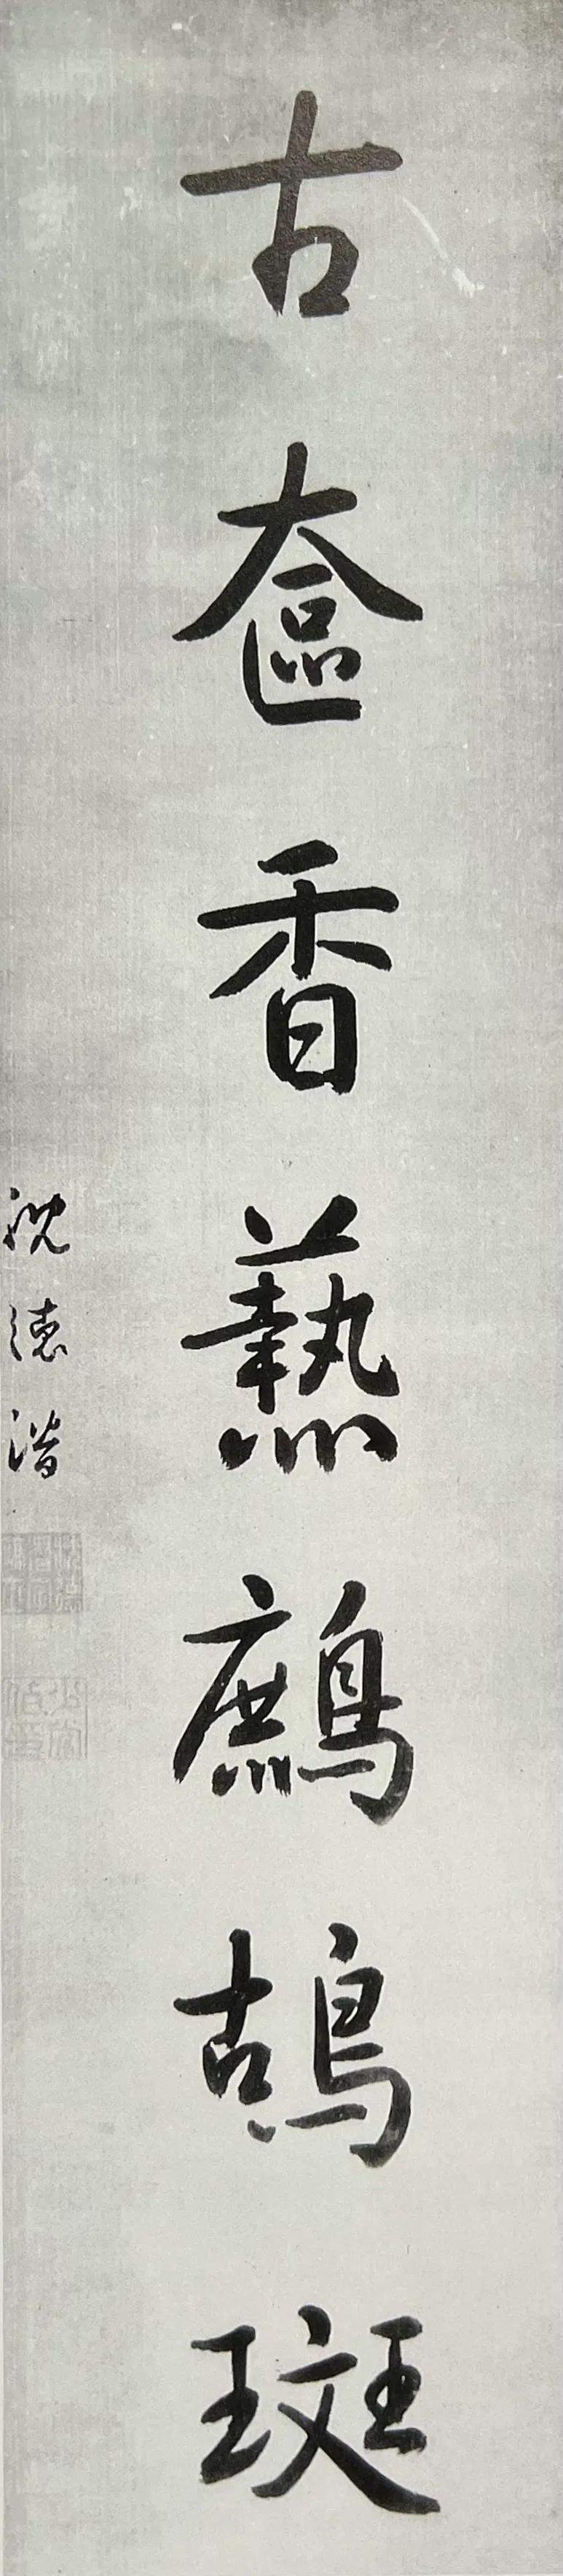 古奩香爇鷓鴣斑
沈德潛